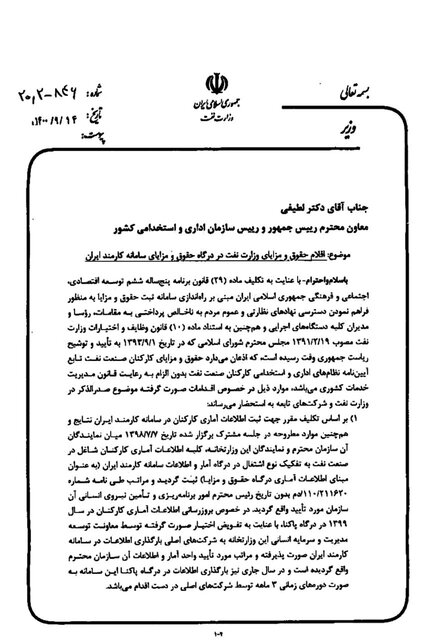 بسمه تعالی
وزیر
جمهوری اسلامی ایران
وزارت نفت
شماره: ۲۰٫۲-۸۴۶
تاریخ: ۱۴۰۰/۹/۱۴
پیوست:
جناب آقای دکتر لطیفی
معاون محترم رییس جمهور و رییس سازمان اداری و استخدامی کشور
موضوع: اقلام حقوق و مزایای وزارت نفت در درگاه حقوق و مزایای سامانه کارمند ایران
باسلام‌واحترام- با عنایت به تکلیف ماده (۲۹) قانون برنامه پنج‌ساله ششم توسعه اقتصادی،
اجتماعی و فرهنگی جمهوری اسلامی ایران مبنی بر راه‌اندازی سامانه ثبت حقوق و مزایا به منظور
فراهم نمودن دسترسی نهادهای نظارتی و عموم مردم به ناخالص پرداختی به مقامات، رؤسا و
مدیران کلیه دستگاه‌های اجرایی و هم‌چنین به استناد ماده (۱۰) قانون وظایف و اختیارات وزارت
نفت مصوب ۱۳۹۱/۲/۱۹ مجلس محترم شورای اسلامی که در تاریخ ۱۳۹۳/۹/۱ به تأیید و توشیح
ریاست جمهوری وقت رسیده است، که اذعان می‌دارد حقوق و مزایای کارکنان صنعت نفت تابع
آیین‌نامه نظام‌های اداری و استخدامی کارکنان صنعت نفت بدون الزام به رعایت قانون مدیریت
خدمات کشوری می‌باشد، موارد ذیل در خصوص اقدامات صورت گرفته موضوع صدرالذکر در
وزارت نفت و شرکت‌های تابعه به استحضار می‌رساند:
۱) بر اساس تکلیف مقرر جهت ثبت اطلاعات آماری کارکنان در سامانه کارمند ایران نتایج و
هم‌چنین موارد مطروحه در جلسه مشترک برگزار شده تاریخ ۱۳۹۸/۷/۷ میان نمایندگان
آن سازمان محترم و نمایندگان این وزارتخانه، کلیه اطلاعات آماری کارکنان شاغل در
صنعت نفت به تفکیک نوع اشتغال در درگاه آمار و اطلاعات سامانه کارمند ایران (به عنوان
مبنای اطلاعات آماری درگاه حقوق و مزایا) ثبت گردید و مراتب طی نامه شماره
۱۱۰/۲۱۱۶۲۰/دم بدون تاریخ رئیس محترم امور برنامه‌ریزی و تأمین نیروی انسانی آن
سازمان مورد تأیید واقع گردید. در خصوص بروزرسانی اطلاعات آماری کارکنان در سال
۱۳۹۹ در درگاه پاکنا، با عنایت به تفویض اختیار صورت گرفته توسط معاونت توسعه
مدیریت و سرمایه انسانی این وزارتخانه به شرکت‌های اصلی بارگذاری اطلاعات در سامانه
کارمند ایران صورت پذیرفته و مراتب مورد تأیید واحد آمار و اطلاعات آن سازمان محترم
واقع گردیده است و در سال جاری نیز بارگذاری اطلاعات در درگاه پاکنا این سامانه به
صورت دوره‌های زمانی ۳ ماهه توسط شرکت‌های اصلی در دست اقدام می‌باشد.